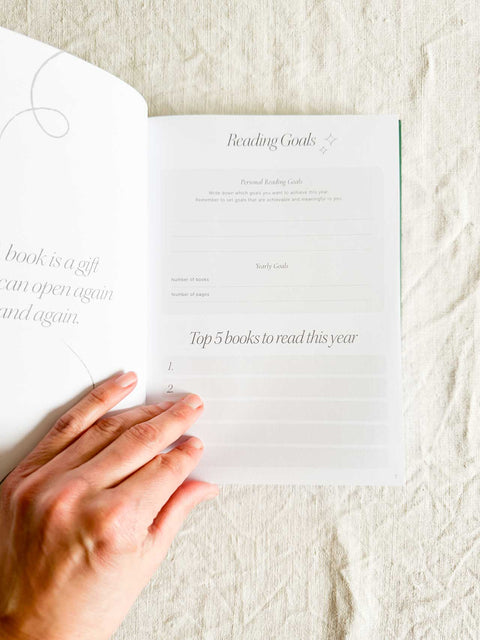 book is a gift
can open again
and again.
Reading Goals
Personal Reading Goals
Write down which goals you want to achieve this year.
Remember to set goals that are achievable and meaningful to you.
Yearly Goals
Number of books
Number of pages
Top 5 books to read this year
1.
2